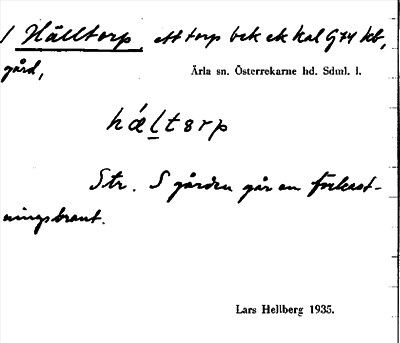 1 Hälltorp, ett torp bek ek kal G74 kb,
gård,
Ärla sn. Österrekarne hd. Sdml. l.
hǽḷtɵrp
Str. S gården går en förkast-
ningsbrant.
Lars Hellberg 1935.